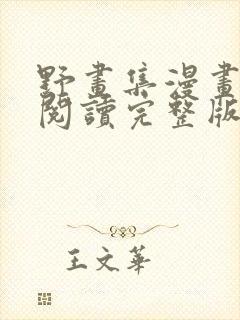 野畫集漫畫
閱讀完整版
王文華